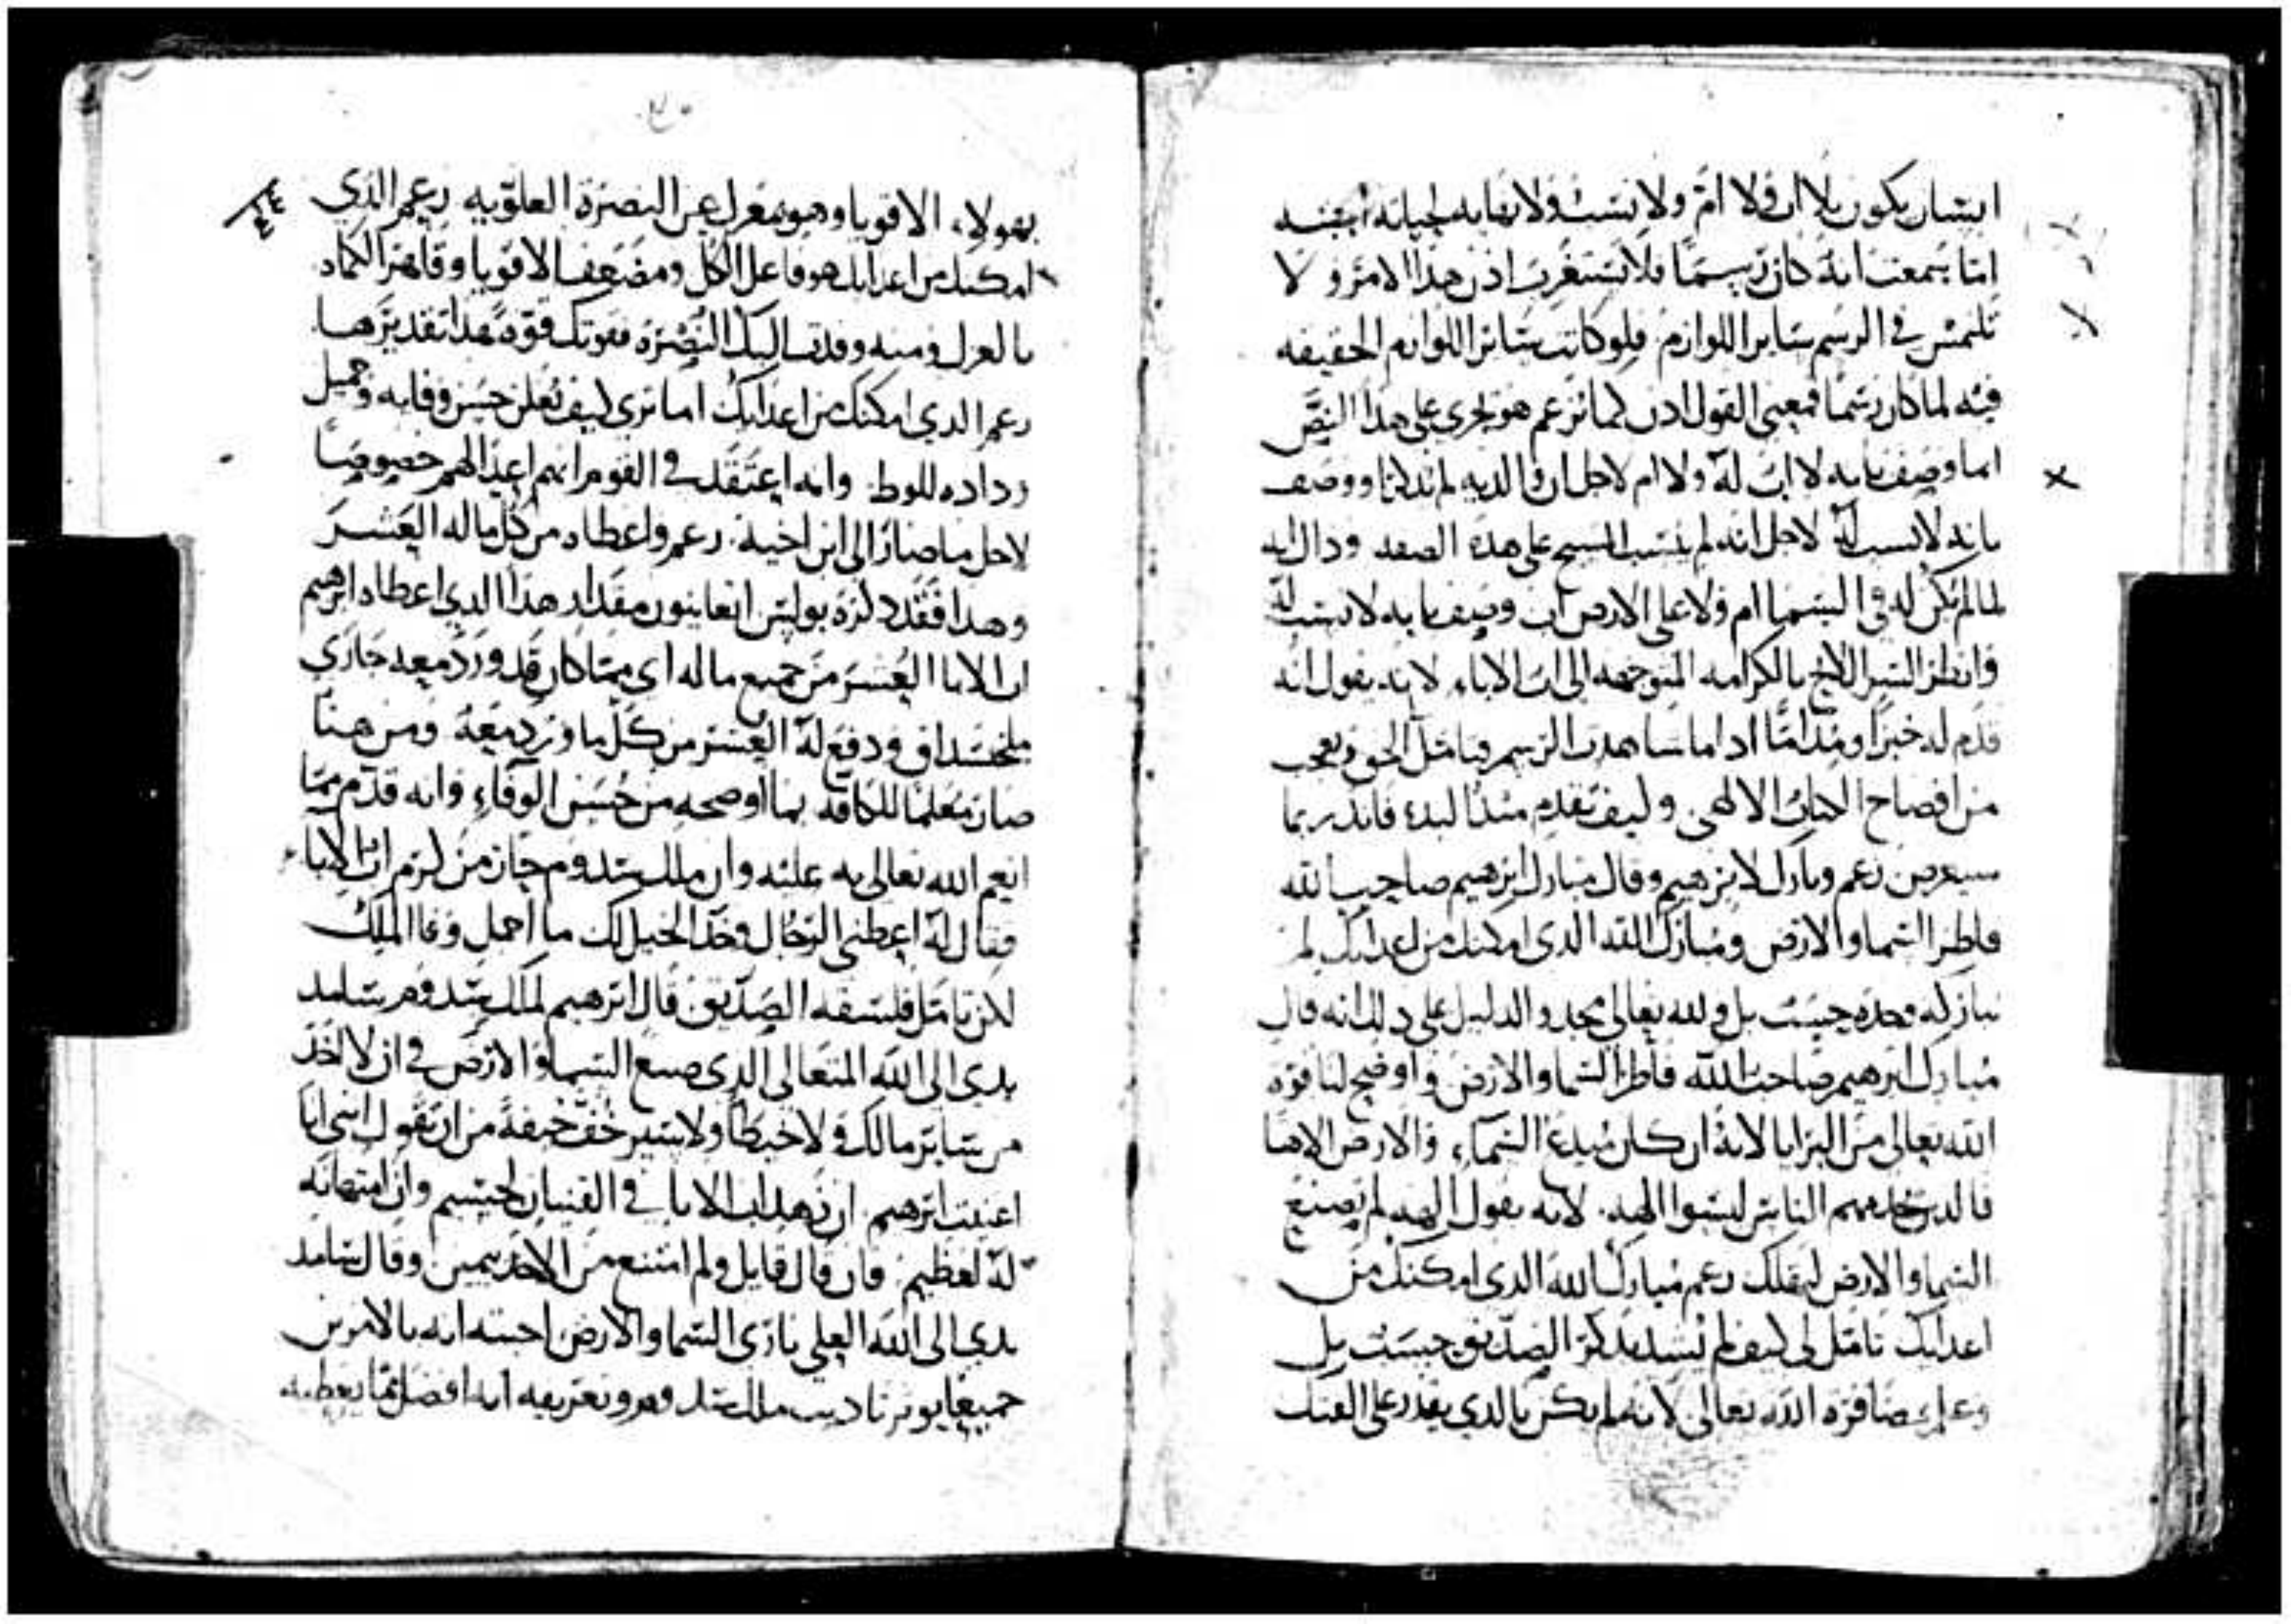 انسان يكون بلا اب ولا ام ولا نسب ولا نهايه لحياته اجبته
اما سمعت انه كان رسما فلا تستغرب اذن هذا الامر ولا
تلتمس في الرسم ساير اللوازم فلو كانت ساير اللوازم الحقيقه
فيه لما كان رسما فمعنى القول اذن كما نزعم هو يجري على هذا النص
اما وصف بانه لا اب له ولا ام لاجل ان والديه لم يذكرا ووصف
بانه لا نسب له لاجل انه لم ينسب المسيح على هذه الصفه وذاك انه
لما لم يكن له في السما ام ولا على الارض اب وصف بانه لا نسب له
وانظر السر اللايح بالكرامه المتوجهه الى اب الاباء لانه يقول انه
قدم له خبزا ومداما اذا ما شاهدت الرسم فتامل الحق وتعجب
من افصاح الكتاب الالهي وكيف تقدم منذ البدء فانذر بما
سيعرض زعم وبارك لابرهيم وقال مبارك ابرهيم صاحب الله
فاطر السما والارض ومبارك الله الذي امكنك من اعدايك لم
يباركه وحده حسب بل ولله تعالى مجد والدليل على ذلك انه قال
مبارك ابرهيم صاحب الله فاطر السما والارض واوضح لنا قوه
الله تعالى من البرايا لانه ان كان مبدع السماء والارض الاها
فالذين يخدمهم الناس ليسوا الهه لانه يقول الهه لم تصنع
السما والارض لتهلك زعم مبارك الله الذي امكنك من
اعدايك تامل لي كيف لم يشد بذكر الصديق حسب بل
وعلم مضافره الله تعالى لانه لم يكن بالذي يقدر على الفتك
بهولاء الاقويا وهو بمعزل عن النصره العلويه زعم الذي
امكنك من اعدايك هو فاعل الكل ومضعف الاقويا وقاهر الكماه
بالعزل ومنه وفدت اليك النصره فقوتك قوه هذا تقديرها
زعم الذي امكنك من اعدايك اما ترى كيف تعلن حسن وفايه وجميل
وداده للوط وانه اعتقد في القوم انهم اعدا لهم خصوصا
لاجل ما صار الى ابن اخيه زعم واعطاه من كل ماله العشر
وهذا فقد ذكره بولس اتعاينون مقدار هذا الذي اعطاه ابرهيم
اب الابا العشر من جميع ماله اي مما كان قد ورد معه جازى
ملخيسداق ودفع له العشر من كل ما ورد معه ومن هنا
صار معلما للكافه بما اوضحه من حسن الوفاء وانه قدم مما
انعم الله تعالى به عليه وان ملك سدوم جاز من كرم اب الابا
فقال له اعطني الرجال وخذ الخيل لك ما اجمل وفا الملك
لكن تامل فلسفه الصديق قال ابرهيم لملك سدوم سامد
يدي الى الله المتعالى الذي صنع السما والارض في ان لا اخذ
من ساير مالك ولا خيطا ولا سير خف خيفة من ان تقول انني انا
اغنيت ابرهيم ان زهد اب الابا في القنيان لجسيم وان امتهانه
له لعظيم فان قال قايل ولم امتنع من الاخذ بيمين وقال سامد
يدي الى الله العلي باري السما والارض اجبته انه بالامرين
جميعا يوثر تاديب ملك سدوم وتعريفه انه افضل مما يعطيه